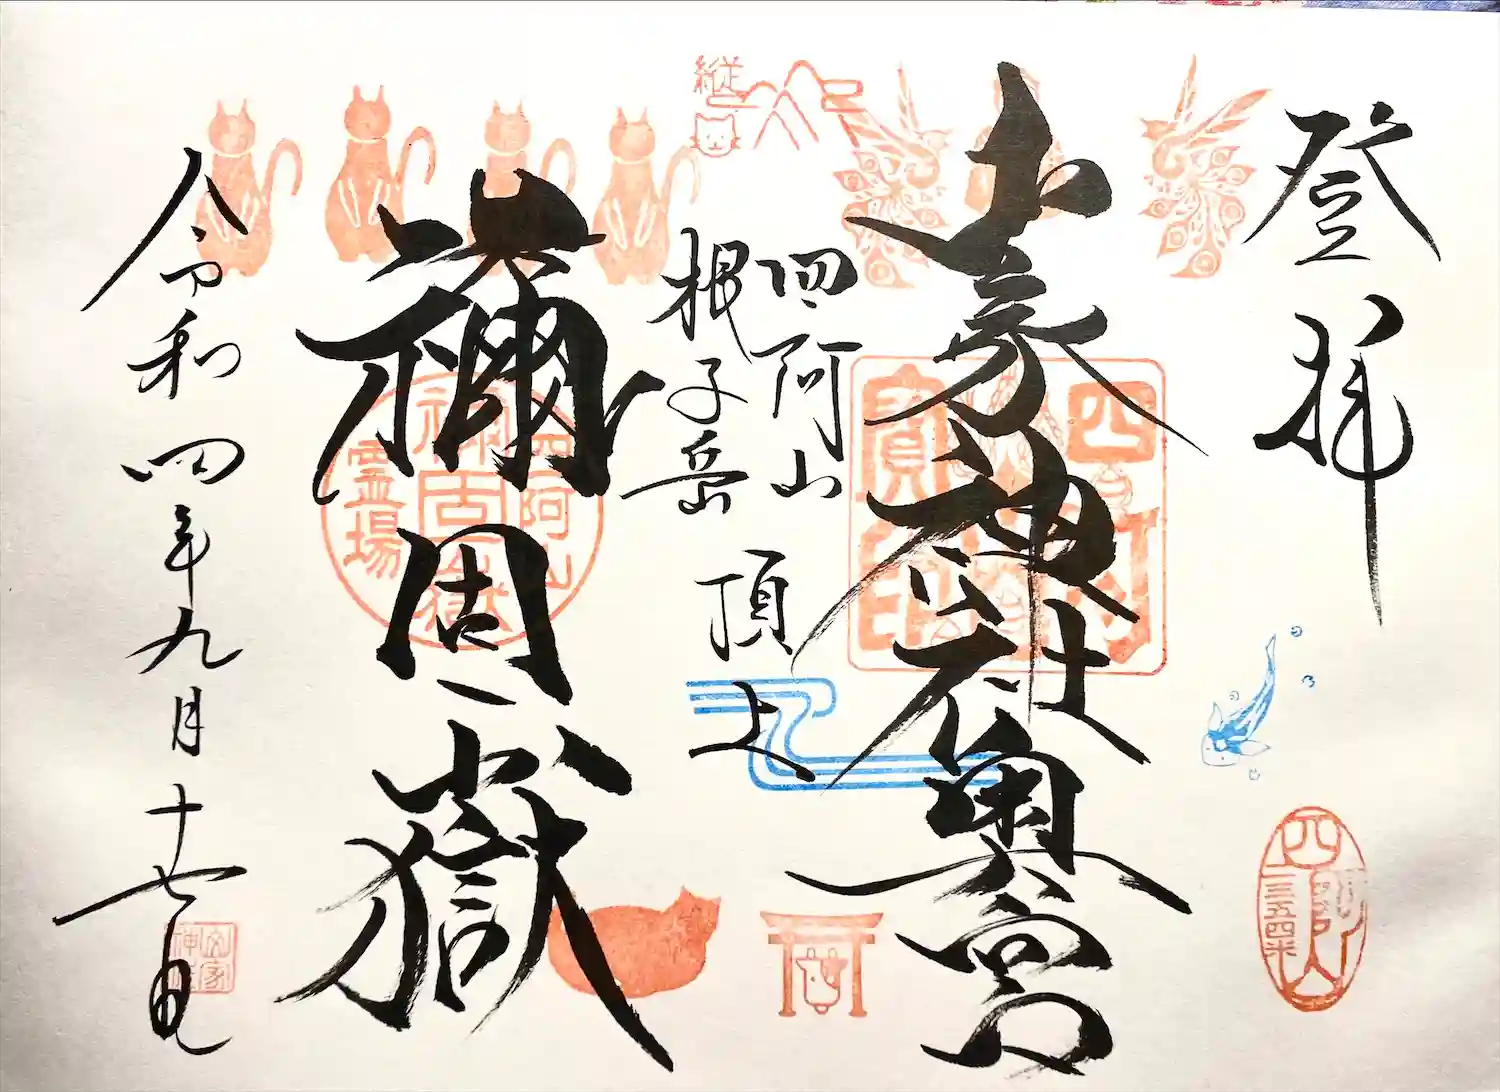 登拝
山家神社奥宮
四阿山
根子岳
頂上
禰固嶽
令和四年九月十七日
四阿山
寶印
四阿山
二三五四米
四阿山
禰固嶽
霊場
縦